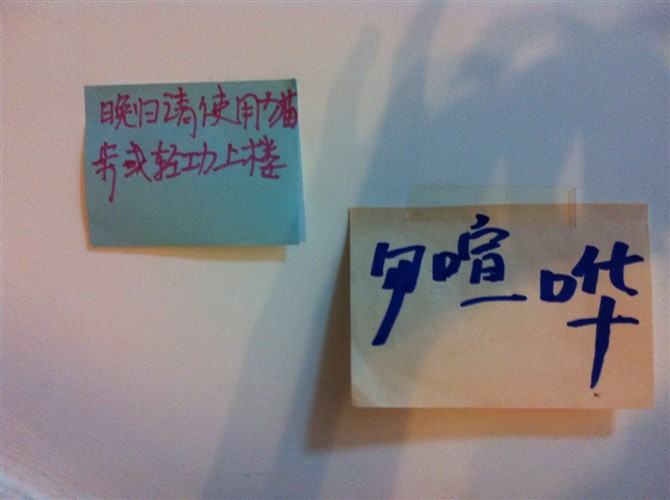 晚归请使用猫
步或轻功上楼
勿喧哗